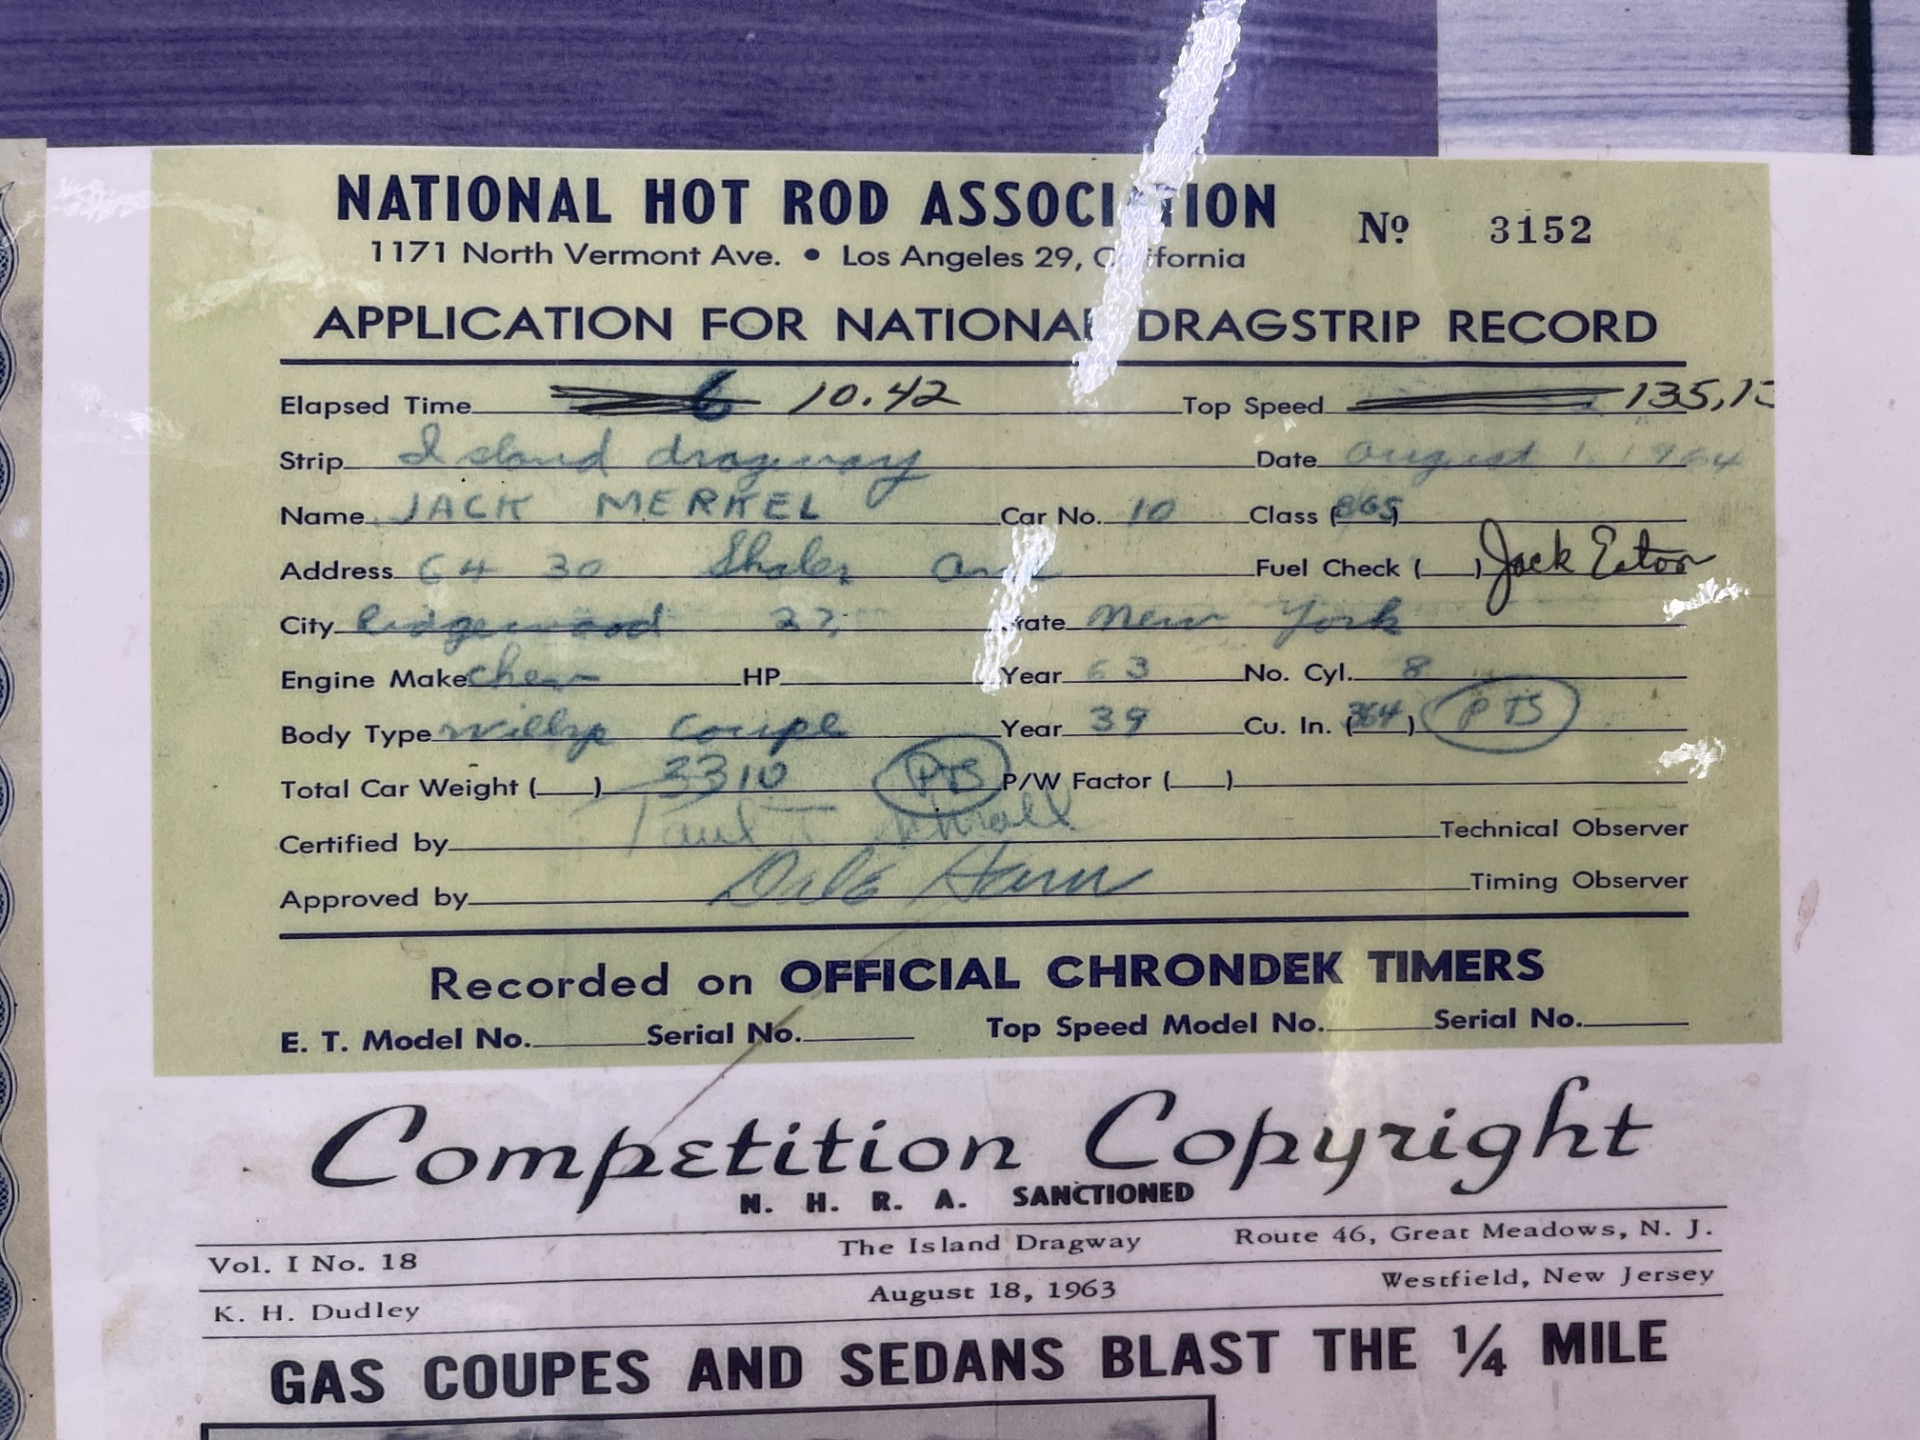 NATIONAL HOT ROD ASSOCIATION Nº 3152
1171 North Vermont Ave. • Los Angeles 29, California
APPLICATION FOR NATIONAL DRAGSTRIP RECORD
Elapsed Time 10.42 Top Speed 135,1
Strip Island dragway Date August 1, 1964
Name JACK MERKEL Car No. 10 Class ( )
Address 64 30 Shaler Fuel Check ( ) Jack Eaton
City Ridgewood 27, State New York
Engine Make Chev HP Year 63 No. Cyl. 8
Body Type Willys Coupe Year 39 Cu. In. (364) PTS
Total Car Weight ( ) 3310 PTS P/W Factor ( )
Certified by Paul T Technical Observer
Approved by Dale Ham Timing Observer
Recorded on OFFICIAL CHRONDEK TIMERS
E. T. Model No. Serial No. Top Speed Model No. Serial No.
Competition Copyright
N. H. R. A. SANCTIONED
Vol. I No. 18 The Island Dragway Route 46, Great Meadows, N. J.
K. H. Dudley August 18, 1963 Westfield, New Jersey
GAS COUPES AND SEDANS BLAST THE ¼ MILE